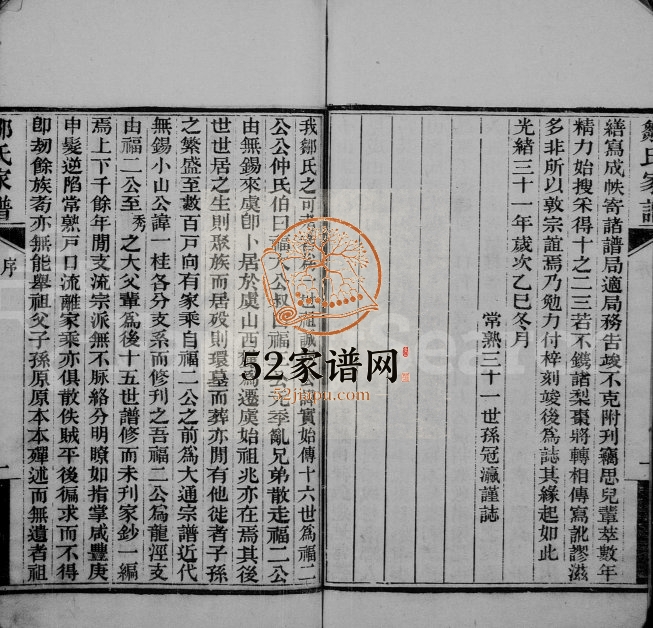 鄒氏家譜
繕寫成帙寄諸譜局適局務告竣不克附刊竊思兒輩萃數年
精力始搜采得十之二三若不鐫諸梨棗將轉相傳寫訛謬滋
多非所以敦宗誼焉乃勉力付梓刻竣後為誌其緣起如此
光緒三十一年歲次乙巳冬月
常熟三十一世孫冠瀛謹誌
我鄒氏之可 實始傳十六世為福二
公公仲氏伯曰福大公叔曰福 季亂兄弟散走福二公
由無錫來虞卽卜居於虞山西 為遷虞始祖兆亦在焉其後
世世居之生則聚族而居歿則環墓而葬亦閒有他徙者子孫
之繁盛至數百戶向有家乘自福二公之前為大通宗譜近代
無錫小山公諱一桂各分支系而修刊之吾福二公為龍涇支
由福二公至秀之大父輩為後十五世譜修而未刊家鈔一編
焉上下千餘年閒支流宗派無不脈絡分明瞭如指掌咸豐庚
申髮逆陷常熟戶口流離家乘亦俱散佚賊平後徧求而不得
卽劫餘族耇亦無能舉祖父子孫原原本本殫述而無遺者祖
鄒氏家譜
序
一
52家谱网
52jiapu.com